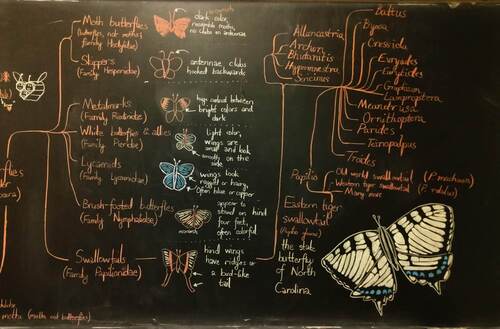 Moth butterflies
(butterflies, not moths;
family Hedylidae)
dark color,
resemble moths,
no clubs on antennae
Skippers
(Family Hesperiidae)
antennae clubs
hooked backwards
Metalmarks
(Family Riodinidae)
huge contrast between
bright colors and
dark
White butterflies & allies
(Family Pieridae)
light color,
wings are
small and look
smoothly on the
side
Lycaenids
(Family Lycaenidae)
wings look
rugged or hairy,
Often blue or copper
Brush-footed butterflies
(Family Nymphalidae)
monarch
appear to
stand on hind
four feet,
often colorful
Swallowtails
(Family Papilionidae)
hind wings
have ridges or
a bird-like
tail
Allancastria
Archon
Bhutanitis
Hypermnestra
Sericinus
Battus
Byasa
Cressida
Euryades
Eurytides
Graphium
Lamproptera
Meandrusa
Ornithoptera
Parides
Teinopalpus
Troides
Papilio
Old world swallowtail (P. machaon)
Western tiger swallowtail (P. rutulus)
Many more
Eastern tiger
swallowtail
(Papilio glaucus)
the state
butterfly
of North
Carolina
moths (moths not butterflies)